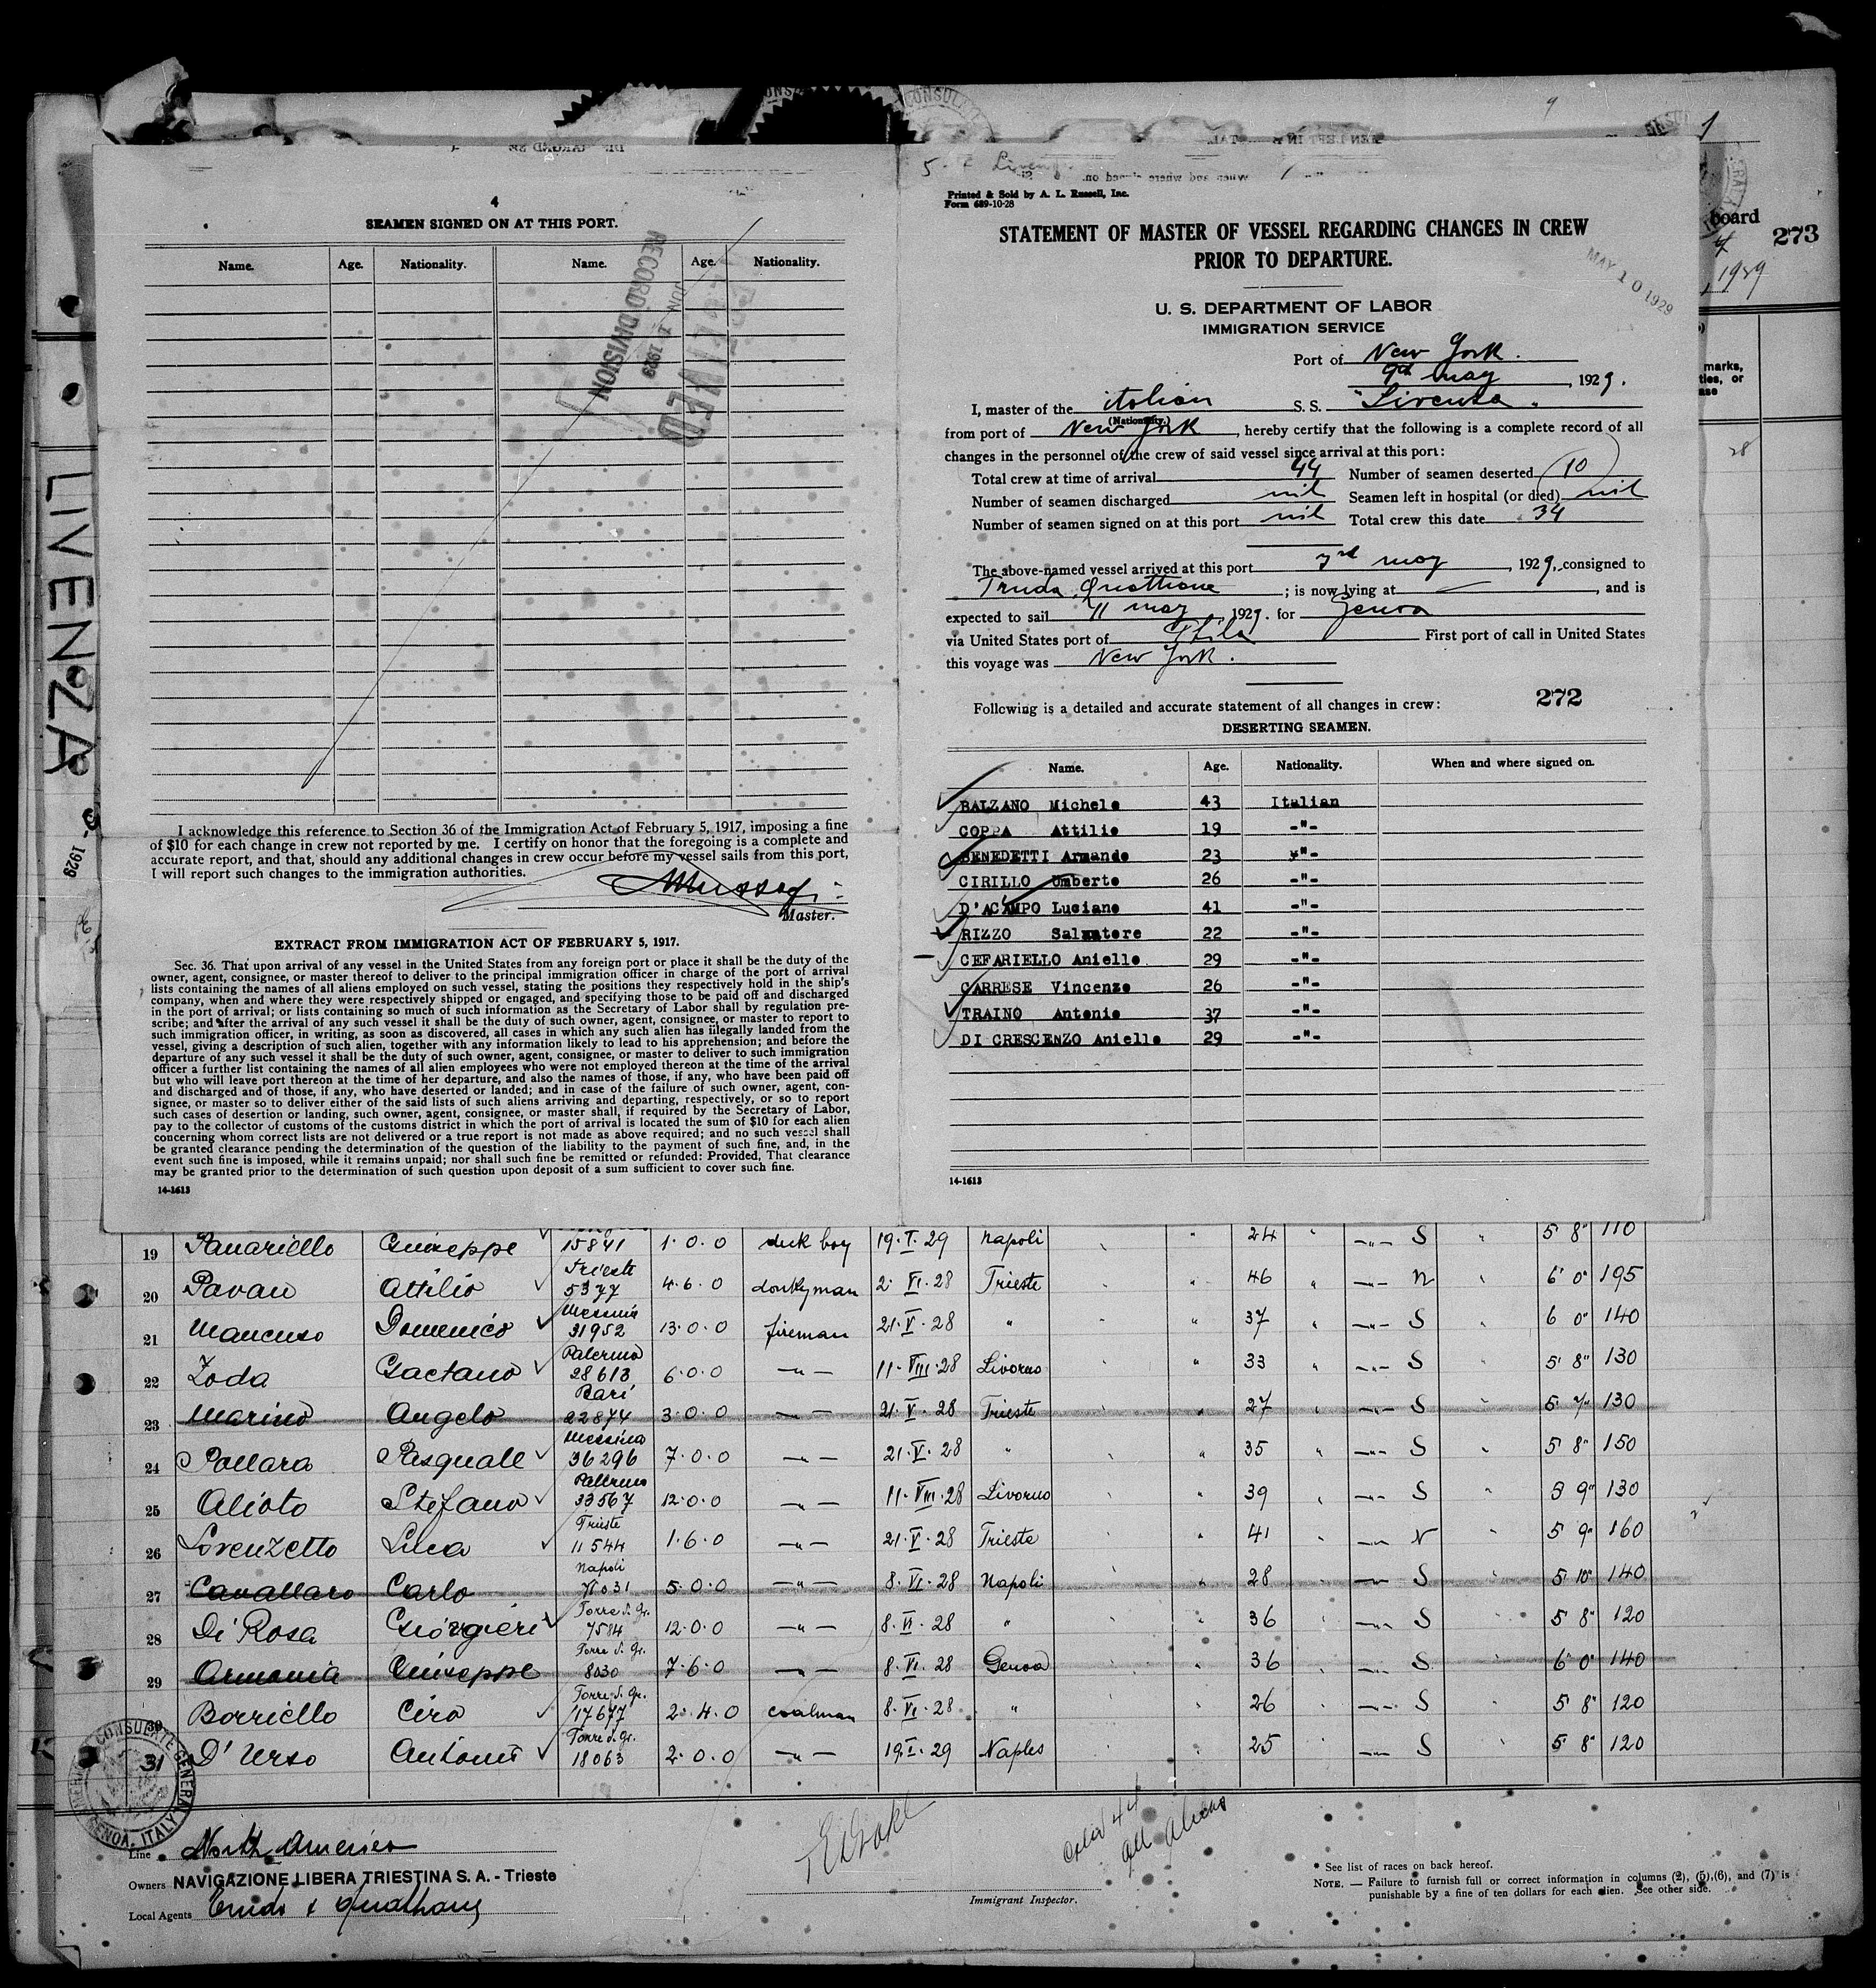 4
SEAMEN SIGNED ON AT THIS PORT.
Name. Age. Nationality. Name. Age. Nationality.
RECEIVED
JUN 1 1929
RECORD DIVISION
I acknowledge this reference to Section 36 of the Immigration Act of February 5, 1917, imposing a fine
of $10 for each change in crew not reported by me. I certify on honor that the foregoing is a complete and
accurate report, and that, should any additional changes in crew occur before my vessel sails from this port,
I will report such changes to the immigration authorities.
Master.
EXTRACT FROM IMMIGRATION ACT OF FEBRUARY 5, 1917.
Sec. 36. That upon arrival of any vessel in the United States from any foreign port or place it shall be the duty of the
owner, agent, consignee, or master thereof to deliver to the principal immigration officer in charge of the port of arrival
lists containing the names of all aliens employed on such vessel, stating the positions they respectively hold in the ship's
company, when and where they were respectively shipped or engaged, and specifying those to be paid off and discharged
in the port of arrival; or lists containing so much of such information as the Secretary of Labor shall by regulation pre-
scribe; and after the arrival of any such vessel it shall be the duty of such owner, agent, consignee, or master to report to
such immigration officer, in writing, as soon as discovered, all cases in which any such alien has illegally landed from the
vessel, giving a description of such alien, together with any information likely to lead to his apprehension; and before the
departure of any such vessel it shall be the duty of such owner, agent, consignee, or master to deliver to such immigration
officer a further list containing the names of all alien employees who were not employed thereon at the time of the arrival
but who will leave port thereon at the time of her departure, and also the names of those, if any, who have been paid off
and discharged and of those, if any, who have deserted or landed; and in case of the failure of such owner, agent, con-
signee, or master so to deliver either of the said lists of such aliens arriving and departing, respectively, or so to report
such cases of desertion or landing, such owner, agent, consignee, or master shall, if required by the Secretary of Labor,
pay to the collector of customs of the customs district in which the port of arrival is located the sum of $10 for each alien
concerning whom correct lists are not delivered or a true report is not made as above required; and no such vessel shall
be granted clearance pending the determination of the question of the liability to the payment of such fine, and, in the
event such fine is imposed, while it remains unpaid; nor shall such fine be remitted or refunded: Provided, That clearance
may be granted prior to the determination of such question upon deposit of a sum sufficient to cover such fine.
14-1613
LIVENZA
1929
Printed & Sold by A. L. Russell, Inc.
Form 689-10-28
STATEMENT OF MASTER OF VESSEL REGARDING CHANGES IN CREW
PRIOR TO DEPARTURE.
MAY 10 1929
U. S. DEPARTMENT OF LABOR
IMMIGRATION SERVICE
Port of New York.
9th may, 1929.
I, master of the italian S. S. "Livenza"
(Nationality.)
from port of New York, hereby certify that the following is a complete record of all
changes in the personnel of the crew of said vessel since arrival at this port:
Total crew at time of arrival 44 Number of seamen deserted 10
Number of seamen discharged nil Seamen left in hospital (or died) nil
Number of seamen signed on at this port nil Total crew this date 34
The above-named vessel arrived at this port 3rd may, 1929, consigned to
Truda Quattrone; is now lying at —, and is
expected to sail 11 may, 1929. for Genoa
via United States port of Phila First port of call in United States
this voyage was New York.
Following is a detailed and accurate statement of all changes in crew: 272
DESERTING SEAMEN.
Name. Age. Nationality. When and where signed on.
BALZANO Michele 43 Italian
COPPA Attilio 19 -"-
BENEDETTI Armando 23 -"-
CIRILLO Umberto 26 -"-
D'ACAMPO Luciano 41 -"-
RIZZO Salvatore 22 -"-
CEFARIELLO Aniello 29 -"-
CARRESE Vincenzo 26 -"-
TRAINO Antonio 37 -"-
DI CRESCENZO Aniello 29 -"-
14-1613
1
board
273
1929
marks,
ties, or
ase
28
19 Panariello Giuseppe 15841 1.0.0 deck boy 19.I.29 Napoli " 24 " -"- S " 5 8" 110
20 Pavan Attilio Trieste 5377 4.6.0 donkeyman 2.VI.28 Trieste " 46 " -"- N " 6' 0" 195
21 Mancuso Domenico Messina 31952 13.0.0 fireman 21.V.28 " " 37 " -"- S " 6 0" 140
22 Zoda Gaetano Palermo 28613 6.0.0 -"- 11.VIII.28 Livorno " 33 " -"- S " 5' 8" 130
23 Marino Angelo Bari 22874 3.0.0 -"- 21.V.28 Trieste " 27 " -"- S " 5 7" 130
24 Pollara Pasquale Messina 36296 7.0.0 -"- 21.V.28 " " 35 " -"- S " 5 8" 150
25 Alioto Stefano Palermo 33567 12.0.0 -"- 11.VIII.28 Livorno " 39 " -"- S " 5 9" 130
26 Lorenzetto Luca Trieste 11544 1.6.0 -"- 21.V.28 Trieste " 41 " -"- N " 5 9" 160
27 Cavallaro Carlo Napoli 71031 5.0.0 -"- 8.VI.28 Napoli " 28 " -"- S " 5 10" 140
28 Di Rosa Giorgieri Torre d. Gr. 7584 12.0.0 -"- 8.VI.28 " " 36 " -"- S " 5 8" 120
29 Armonia Giuseppe Torre d. Gr. 8030 7.6.0 -"- 8.VI.28 Genoa " 36 " -"- S " 6' 0" 140
30 Borriello Ciro Torre d. Gr. 17677 2.4.0 coalman 8.VI.28 " " 26 " -"- S " 5 8" 120
31 D'Urso Antonio Torre d. Gr. 18063 2.0.0 -"- 19.I.29 Naples " 25 " -"- S " 5 8" 120
CONSULATE GENERAL
GENOA, ITALY
Line North America
Owners NAVIGAZIONE LIBERA TRIESTINA S. A. - Trieste
Local Agents
44
all aliens
Immigrant Inspector.
* See list of races on back hereof.
NOTE. — Failure to furnish full or correct information in columns (2), (5),(6), and (7) is
punishable by a fine of ten dollars for each alien. See other side.